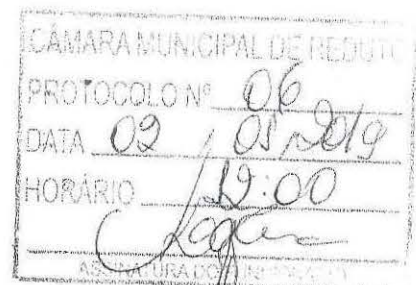 CÂMARA MUNICIPAL DE REDUTO
PROTOCOLO Nº 06
DATA 02 / 01 / 2019
HORÁRIO 12:00
ASSINATURA DO